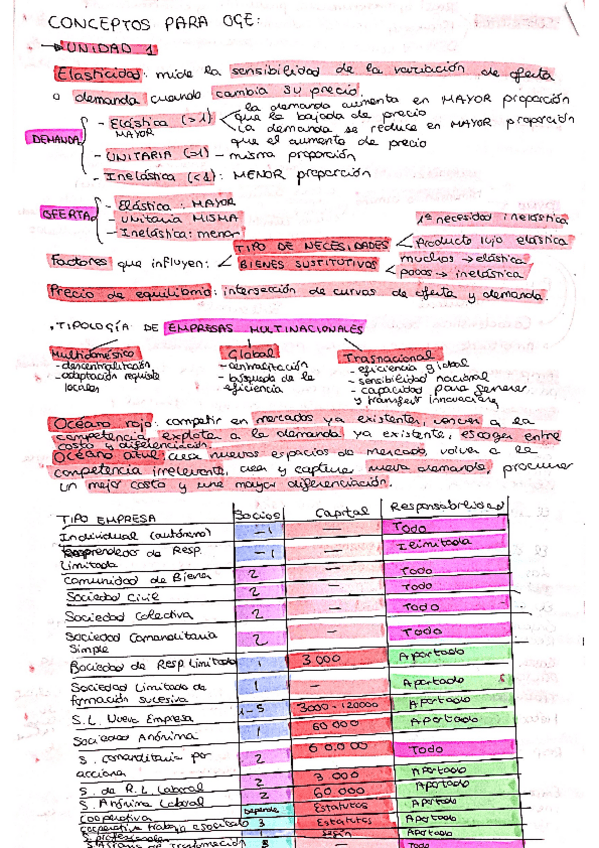 CONCEPTOS PARA OGE:
→ UNIDAD 1
Elasticidad: mide la sensibilidad de la variación de oferta
o demanda cuando cambia su precio.
DEMANDA
- Elástica (>1)
MAYOR
la demanda aumenta en MAYOR proporción
que la bajada de precio
la demanda se reduce en MAYOR proporción
que el aumento de precio
- UNITARIA (=1) - misma proporción
- Inelástica (<1): MENOR proporción
OFERTA
- Elástica: MAYOR
- Unitaria MISMA
- Inelástica: menor
Factores que influyen:
TIPO DE NECESIDADES
1ª necesidad inelástica
Producto lujo elástica
BIENES SUSTITUTIVOS
muchos → elástica
pocos → inelástica
Precio de equilibrio: intersección de curvas de oferta y demanda.
. TIPOLOGÍA DE EMPRESAS MULTINACIONALES
Multidoméstico
- descentralización
- adaptación
locales
Global
- centralización
- búsqueda de la
eficiencia
Trasnacional
- eficiencia global
- sensibilidad nacional
- capacidad para generar
y transferir
Océano rojo: competir en mercados ya existentes, vencer a la
competencia, explota a la demanda ya existente, escoger entre
costo y diferenciación.
Océano azul: crea nuevos espacios de mercado, volver a la
competencia irrelevante, crea y captura nueva demanda, procurar
un mejor costo y una mayor diferenciación.
TIPO EMPRESA Socios Capital Responsabilidad
Individual (autónomo) - 1 — Todo
Emprendedor de Resp.
Limitada - 1 — Ilimitada
Comunidad de Bienes 2 — Todo
Sociedad Civil 2 — Todo
Sociedad Colectiva 2 — Todo
Sociedad Comanditaria
Simple 2 — Todo
Sociedad de Resp. Limitada 1 3000 Aportado
Sociedad Limitada de
formación sucesiva 1 — Aportado
S.L. Nueva Empresa 1-5 3000-120000 Aportado
Sociedad Anónima 1 60 000 Aportado
S. comanditaria por
acciones 2 60.000 Todo
S. de R.L. Laboral 2 3 000 Aportado
S. Anónima Laboral 2 60 000 Aportado
Cooperativa Depende Estatutos Aportado
Cooperativa trabajo asociado 3 Estatutos Aportado
S. profesionales 1 según Aportado